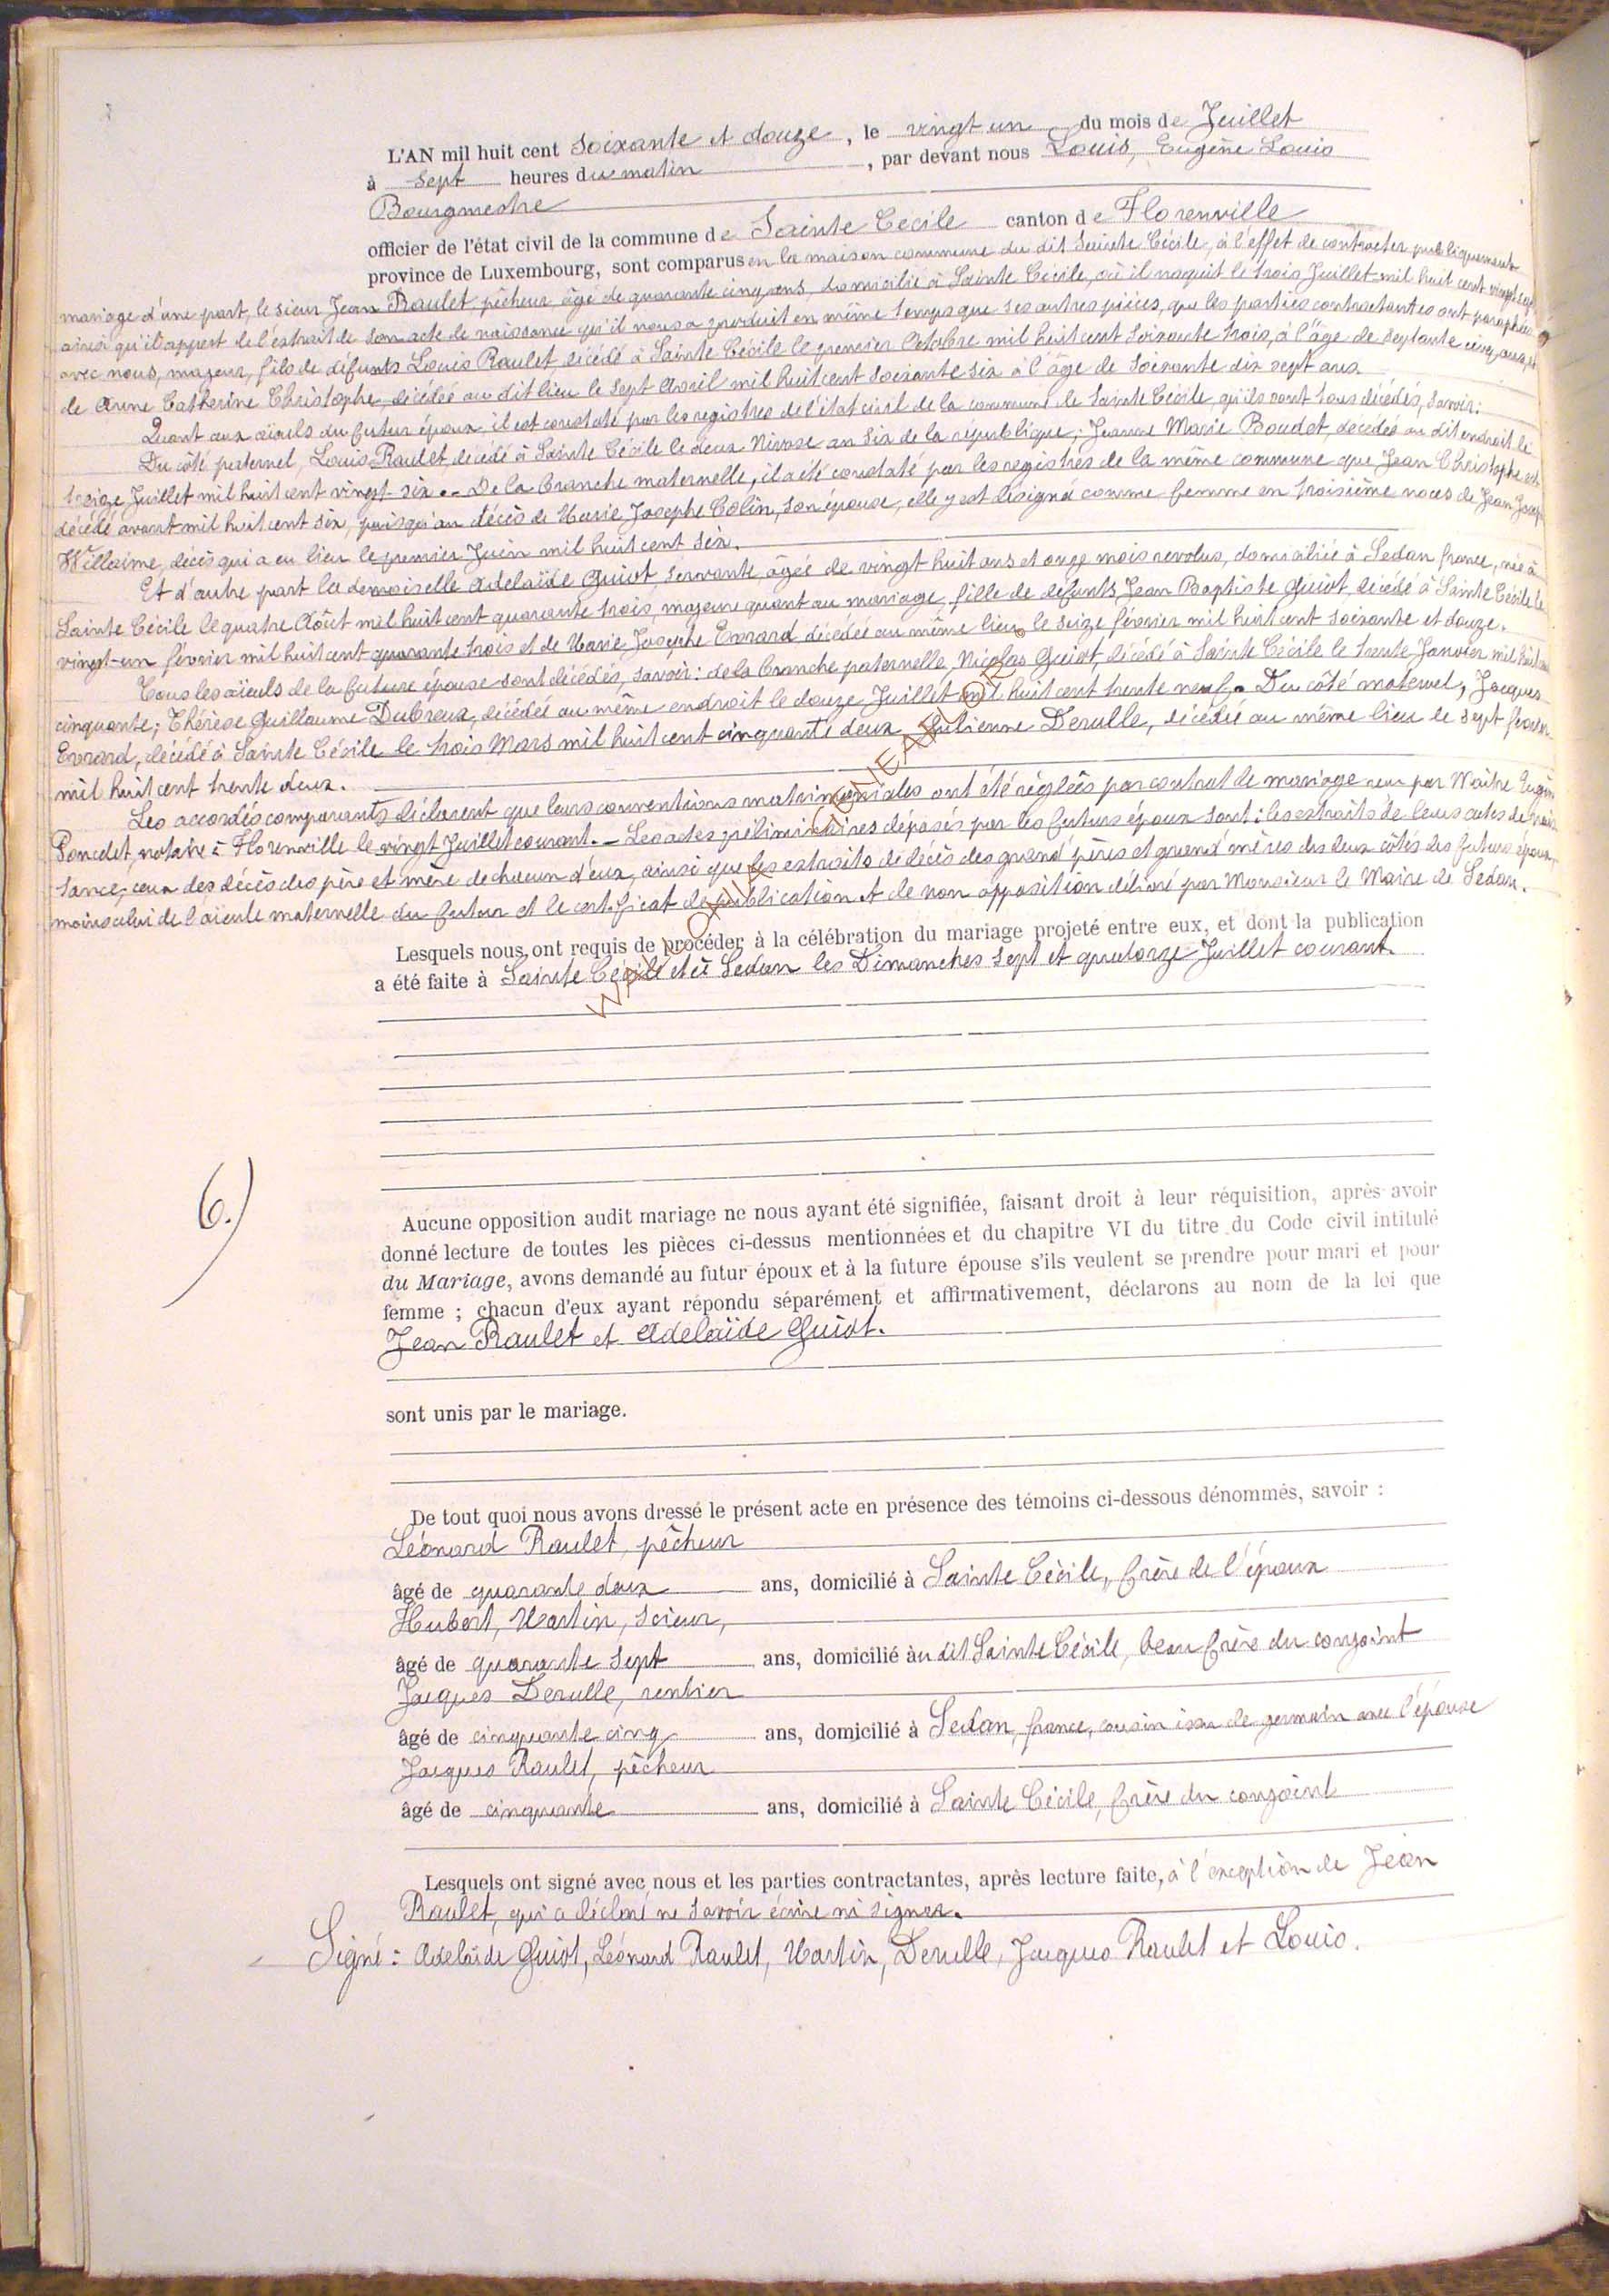 L'AN mil huit cent soixante et douze, le vingt un du mois de Juillet
à sept heures du matin, par devant nous Louis, Eugène Louis
Bourgmestre
officier de l'état civil de la commune de Sainte Cécile canton de Florenville
province de Luxembourg, sont comparus en la maison commune du dit Sainte Cécile, à l'effet de contracter publiquement
mariage d'une part, le sieur Jean Raulet, pêcheur âgé de quarante cinq ans, domicilié à Sainte Cécile, où il naquit le trois Juillet mil huit cent vingt sept
ainsi qu'il appert de l'extrait de son acte de naissance qu'il nous a produit en même temps que ses autres pièces, que les parties contractantes ont paraphées
avec nous, majeur, fils de défunts Louis Raulet, décédé à Sainte Cécile le premier Octobre mil huit cent soixante trois, à l'âge de septante cinq ans, et
de Anne Catherine Christophe, décédée au dit lieu le sept Avril mil huit cent soixante six à l'âge de soixante dix sept ans.
Quant aux aïeuls du futur époux, il est constaté par les registres de l'état civil de la commune de Sainte Cécile, qu'ils sont tous décédés, savoir:
Du côté paternel, Louis Raulet, décédé à Sainte Cécile le deux Nivose an six de la république; Jeanne Marie Boudet, décédée au dit endroit le
treize Juillet mil huit cent vingt-six. - De la branche maternelle, il a été constaté par les registres de la même commune que Jean Christophe est
décédé avant mil huit cent six, puisqu'au décès de Marie Josephe Colin, son épouse, elle y est désignée comme femme en troisième noces de Jean Joseph
Willaime, décès qui a eu lieu le premier Juin mil huit cent six.
Et d'autre part la demoiselle Adelaïde Guiot, servante, âgée de vingt huit ans et onze mois revolus, domiciliée à Sedan france, née à
Sainte Cécile le quatre Août mil huit cent quarante trois, majeure quant au mariage, fille de défunts, Jean Baptiste Guiot, décédé à Sainte Cécile le
vingt-un février mil huit cent quarante trois et de Marie Josephe Evrard décédée au même lieu, le seize février mil huit cent soixante et douze.
Tous les aïeuls de la future épouse sont décédés, savoir: de la branche paternelle, Nicolas Guiot, décédé à Sainte Cécile le trente Janvier mil huit cent
cinquante; Thérèse Guillaume Dubreux, décédée au même endroit le douze Juillet mil huit cent trente neuf. - Du côté maternel, Jacques
Evrard, décédé à Sainte Cécile le trois Mars mil huit cent cinquante deux, Julienne Derulle, décédée au même lieu le sept février
mil huit cent trente deux.
Les accordés comparants déclarent que leurs conventions matrimoniales ont été réglées par contrat de mariage reçu par Maître Eugène
Poncelet, notaire à Florenville le vingt Juillet courant. - Les actes préliminaires déposés par les futurs époux sont: les extraits de leurs actes de nais-
sance, ceux des décès des père et mère de chacun d'eux, ainsi que les extraits de décès des grand'pères et grand'mères des deux côtés des futurs époux,
moins celui de l'aïeule maternelle du futur et le certificat de publication et de non opposition délivré par Monsieur le Maire de Sedan.
Lesquels nous ont requis de procéder à la célébration du mariage projeté entre eux, et dont la publication
a été faite à Sainte Cécile et à Sedan les Dimanches sept et quatorze Juillet courant.
6.)
Aucune opposition audit mariage ne nous ayant été signifiée, faisant droit à leur réquisition, après avoir
donné lecture de toutes les pièces ci-dessus mentionnées et du chapitre VI du titre du Code civil intitulé
du Mariage, avons demandé au futur époux et à la future épouse s'ils veulent se prendre pour mari et pour
femme ; chacun d'eux ayant répondu séparément et affirmativement, déclarons au nom de la loi que
Jean Raulet et Adelaïde Guiot.
sont unis par le mariage.
De tout quoi nous avons dressé le présent acte en présence des témoins ci-dessous dénommés, savoir :
Léonard Raulet, pêcheur
âgé de quarante deux ans, domicilié à Sainte Cécile, frère de l'époux
Hubert, Martin, scieur,
âgé de quarante sept ans, domicilié au dit Sainte Cécile, beau frère du conjoint
Jacques Derulle, rentier
âgé de cinquante cinq ans, domicilié à Sedan, france, cousin issu de germain avec l'épouse
Jacques Raulet, pêcheur
âgé de cinquante ans, domicilié à Sainte Cécile, frère du conjoint
Lesquels ont signé avec nous et les parties contractantes, après lecture faite, à l'exception de Jean
Raulet, qui a déclaré ne savoir écrire ni signer.
Signé : Adelaïde Guiot, Léonard Raulet, Martin, Derulle, Jacques Raulet et Louis.